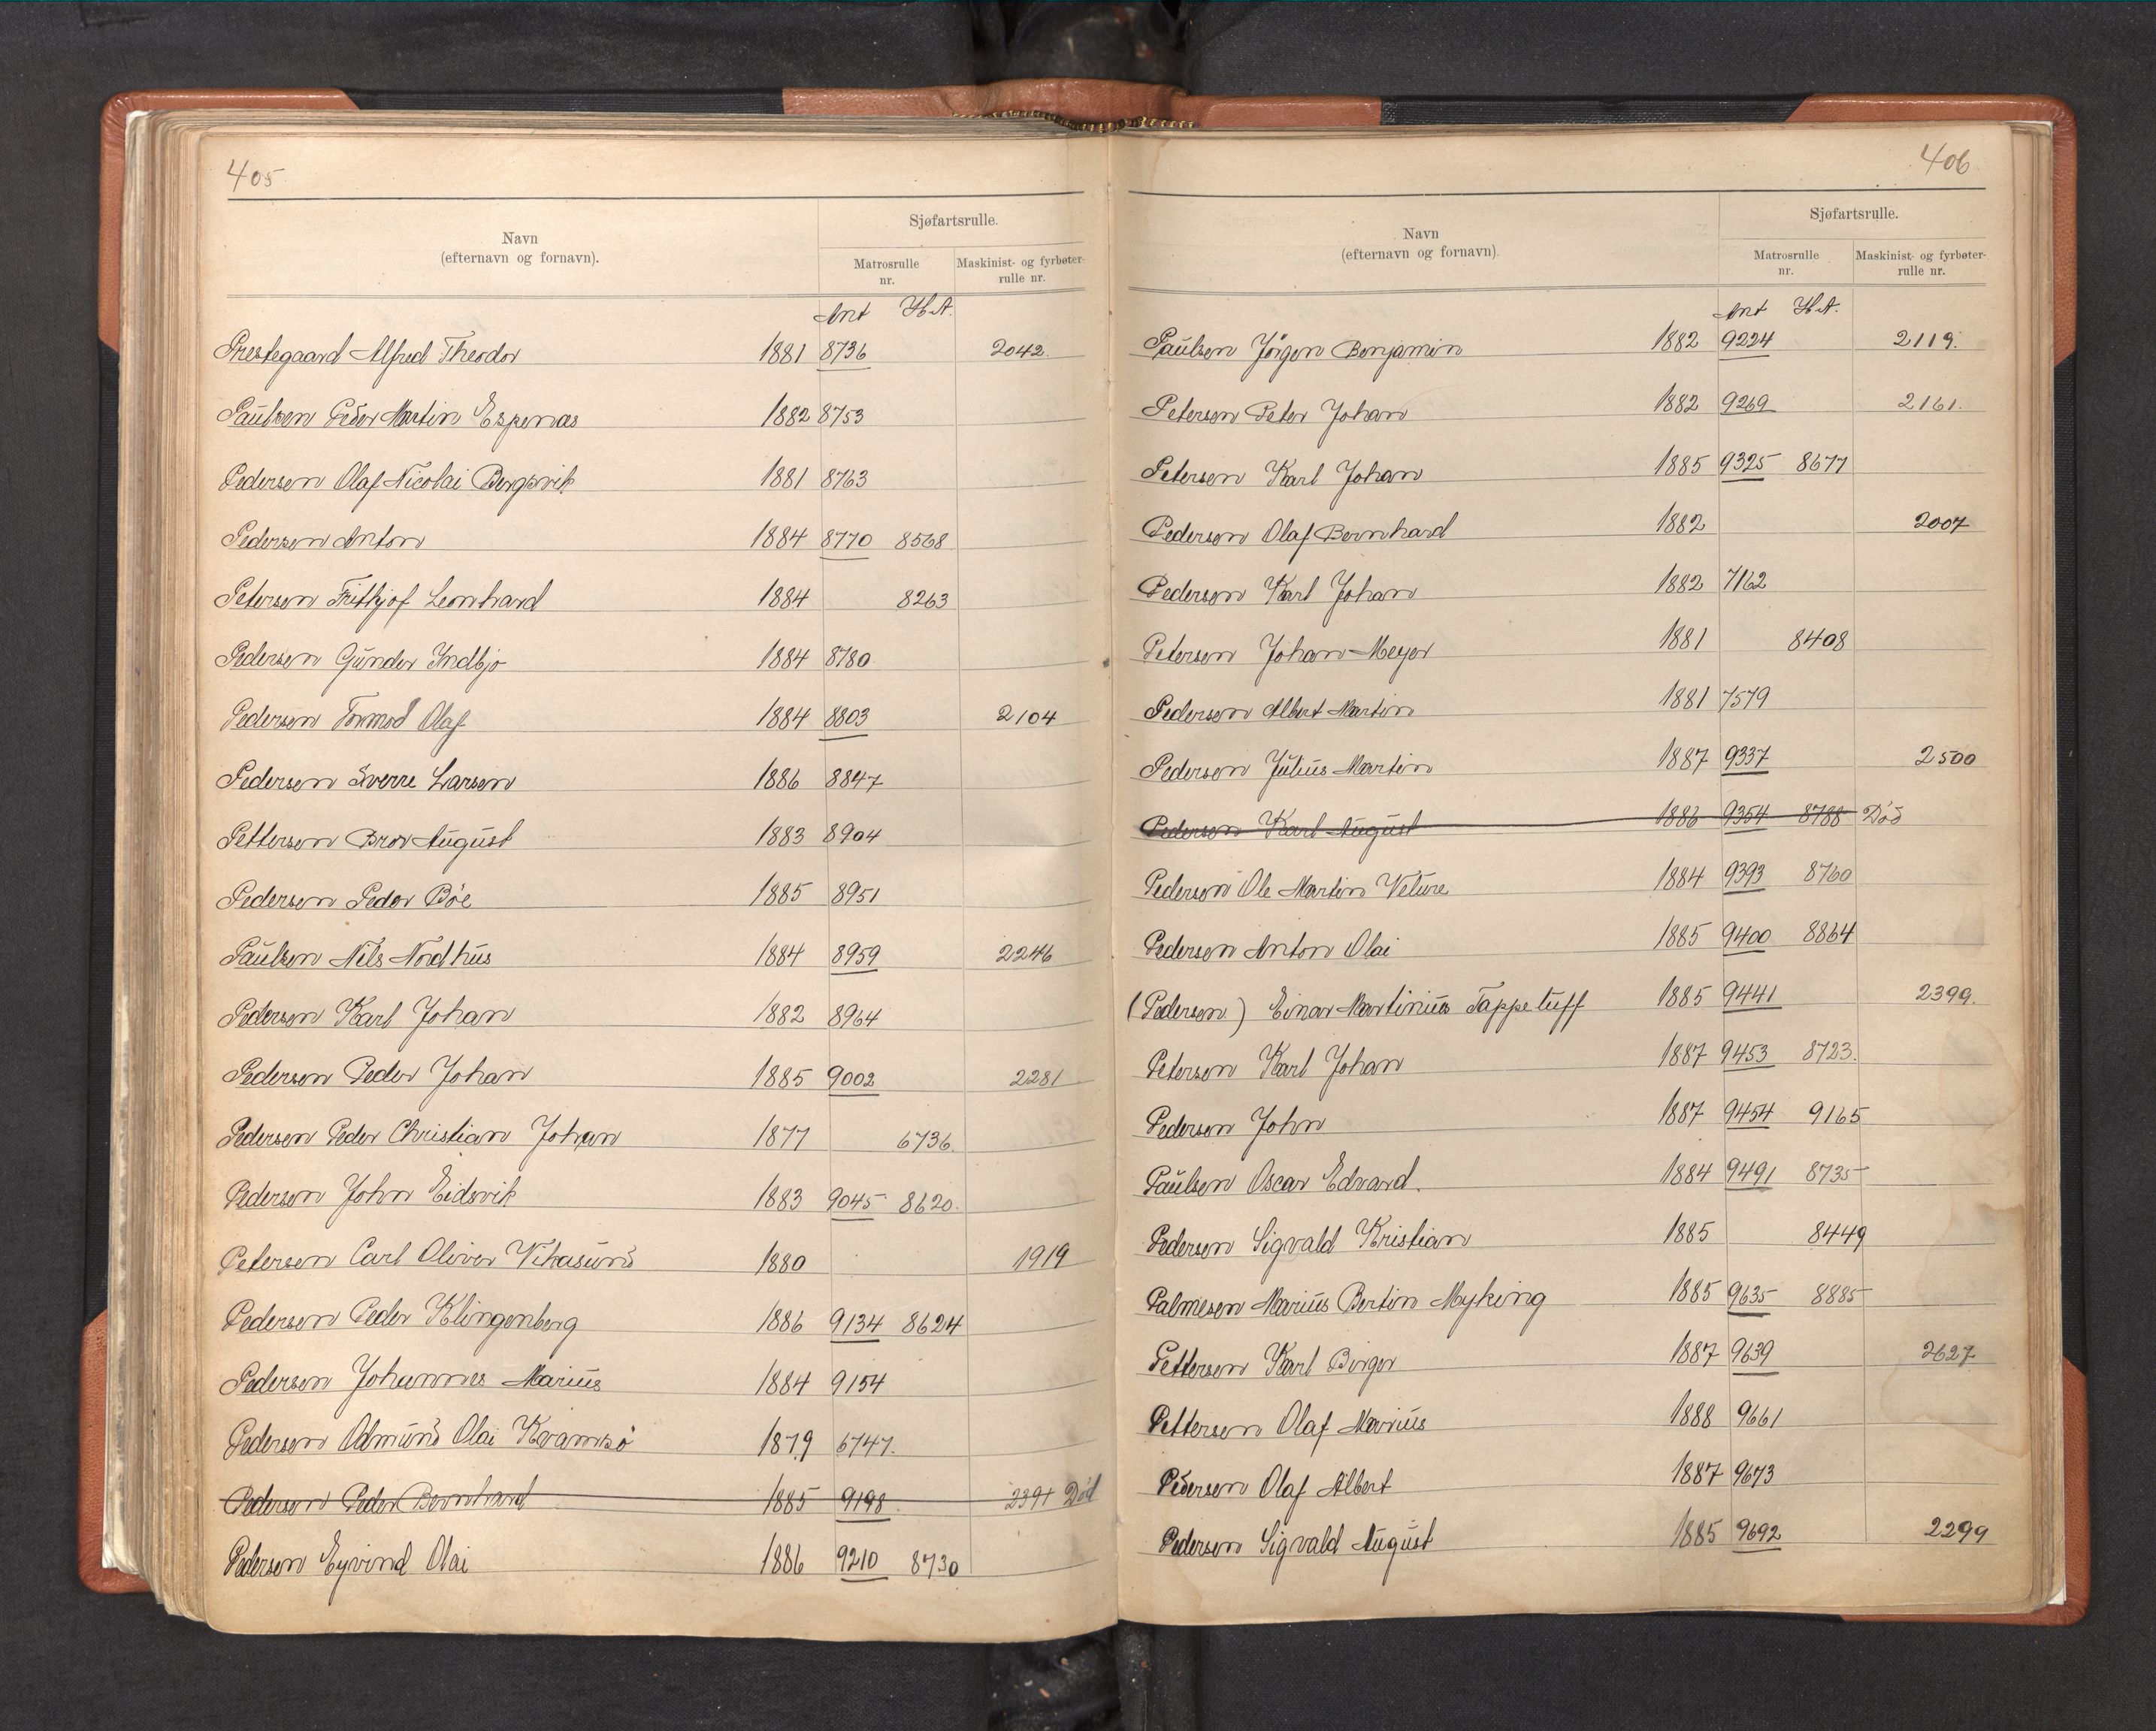 405
Navn
(efternavn og fornavn).
Sjøfartsrulle.
Matrosrulle
nr.
Maskinist- og fyrbøter-
rulle nr.
Ant H.A.
Prestegaard Alfred Theodor 1881 8736 2042.
Paulsen Peder Martin Espenas 1882 8753
Pedersen Olaf Nicolai Bergsvik 1881 8763
Pedersen Anton 1884 8770 8568
Petersen Frithjof Leonhard 1884 8263
Pedersen Gunder Indbjo 1884 8780
Pedersen Tormod Olaf 1884 8803 2104
Pedersen Sverre Larsen 1886 8847
Pettersen Bror August 1883 8904
Pedersen Peder Bøe 1885 8951
Paulsen Nils Nordhus 1884 8959 2246
Pedersen Karl Johan 1882 8964
Pedersen Peder Johan 1885 9002 2281
Pedersen Peder Christian Johan 1877 6736.
Pedersen John Eidsvik 1883 9045 8620.
Petersen Carl Oliver Vikasund 1880 1919
Pedersen Peder Klingenberg 1886 9134 8624
Pedersen Johannes Marius 1884 9154
Pedersen Odmund Olai Kvamsø 1879 6747.
Pedersen Peder Bernhard 1885 9198. Død
Pedersen Eyvind Olai 1886 9210 8730
406
Navn
(efternavn og fornavn)
Sjøfartsrulle.
Matrosrulle
nr.
Maskinist- og fyrbøter-
rulle nr.
Ant H.A.
Paulsen Jörgen Benjamin 1882 9224 2119.
Petersen Peter Johan 1882 9269 2161.
Petersen Karl Johan 1885 9325 8677
Pedersen Olaf Bernhard 1882 2007
Pedersen Karl Johan 1882 7162
Petersen Johan Meyer 1881 8408
Pedersen Albert Martin 1881 7579
Pedersen Julius Martin 1887 9337 2500
Pedersen Karl August 1886 9354 8788 Død
Pedersen Ole Martin Veture 1884 9393 8760
Pedersen Anton Olai 1885 9400 8864
(Pedersen) Einar Martinius Tappetuff 1885 9441 2399.
Petersen Karl Johan 1887 9453 8723.
Pedersen John 1887 9454 9165
Paulsen Oscar Edvard. 1884 9491 8735
Pedersen Sigvald Kristian 1885 8449
Palmesen Marius Bertin Myking 1885 9635 8885
Pettersen Karl Birger 1887 9639 2627.
Pettersen Olaf Marius 1888 9661
Pedersen Olaf Albert 1887 9673
Pedersen Sigvald August 1885 9692 2299